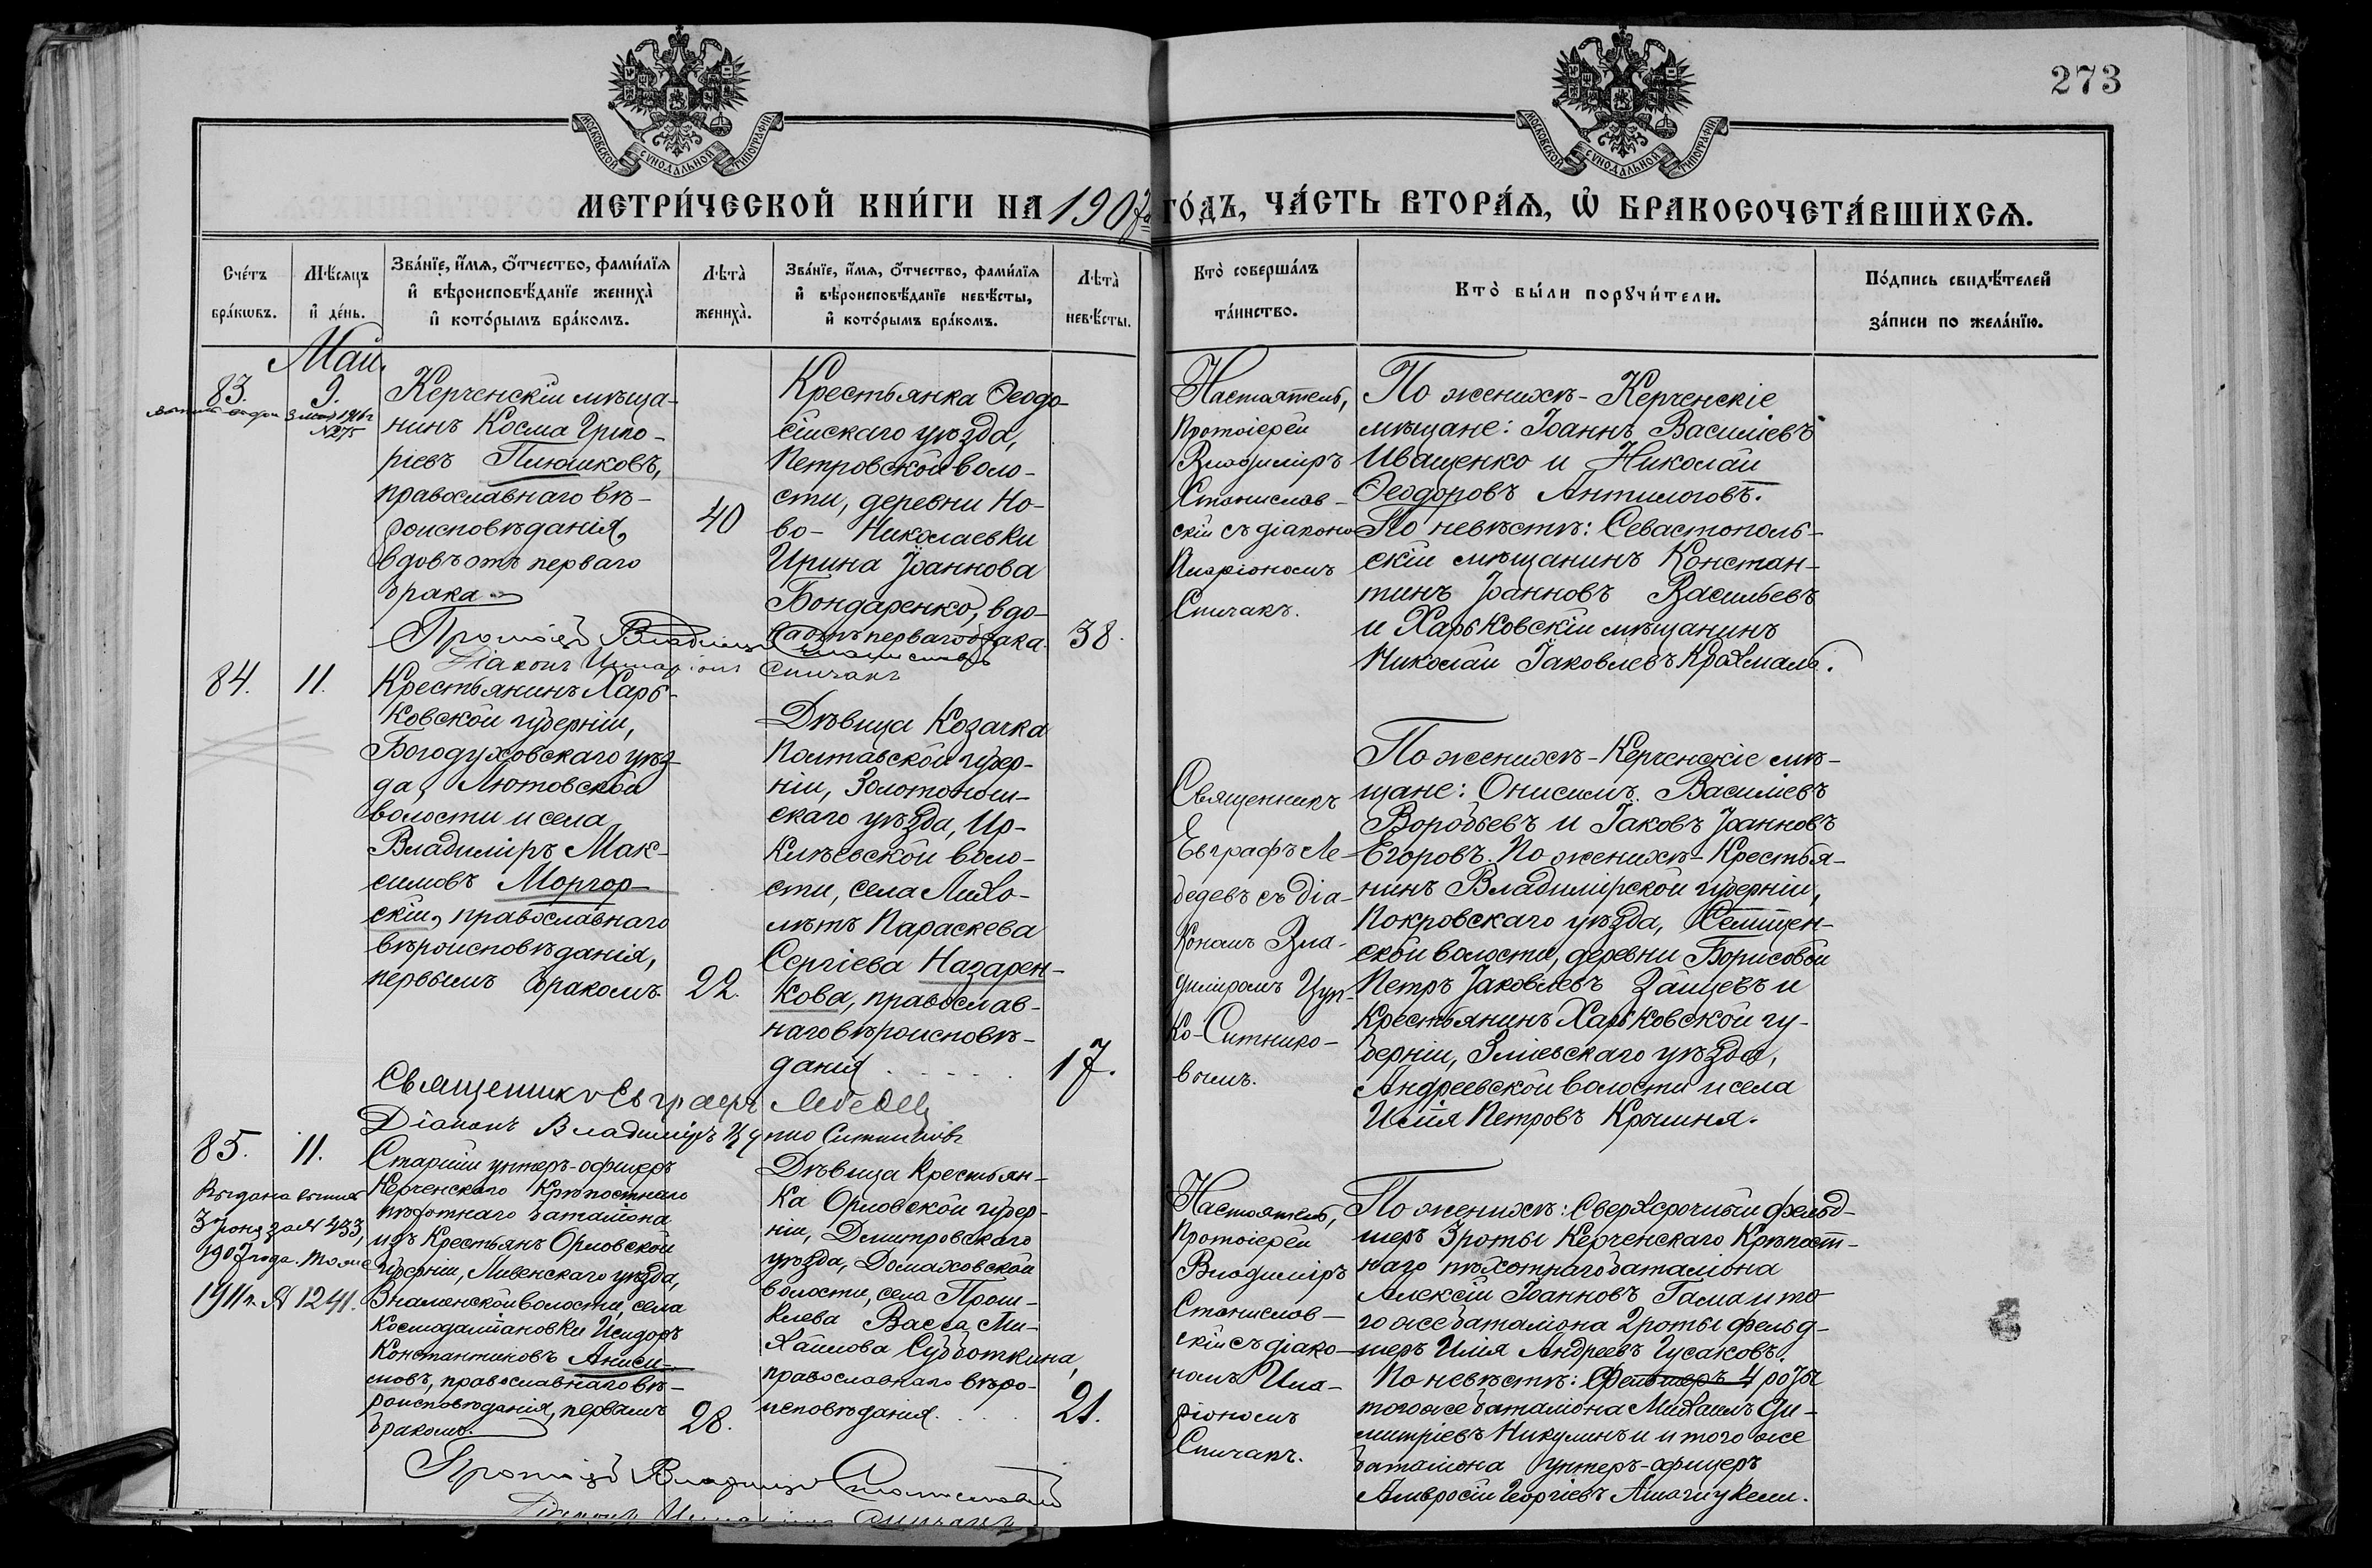 273
МОСКОВСКОЙ СУНОДАЛЬНОЙ ТИПОГРАФІИ
МОСКОВСКОЙ СУНОДАЛЬНОЙ ТИПОГРАФІИ
МЕТРИ́ЧЕСКОЙ КНИ́ГИ НА 1907 ГО́ДЪ, ЧА́СТЬ ВТОРА́Ѧ, Ѽ БРАКОСОЧЕТА́ВШИХСѦ.
Сче́тъ
бра́кѡвъ.
Мѣ́сяцъ
и҆ де́нь.
Зва́нїе, и҆́мя, ѻ҆́тчество, фами́лїя
и҆ вѣроисповѣ́данїе жениха̀
и҆ кото́рымъ бра́комъ.
Лѣта̀
жениха̀.
Зва́нїе, и҆́мя, ѻ҆́тчество, фами́лїя
и҆ вѣроисповѣ́данїе невѣ́сты,
и҆ кото́рымъ бра́комъ.
Лѣта̀
невѣ́сты.
Кто̀ соверша́лъ
та́инство.
Кто̀ бы́ли порꙋчи́тели.
По́дпись свидѣ́телей
за́писи по жела́нїю.
Май.
83.
9.
№275
Керченскій мѣща-
нинъ Косма Григо-
ріевъ Плюшковъ,
православнаго вѣ-
роисповѣданія,
вдовъ отъ перваго
брака
40
Крестьянка Ѳеодо-
сійскаго уѣзда,
Петровской воло-
сти, деревни Но-
во-Николаевки
Ирина Іоаннова
Бондаренко, вдо-
ва отъ перваго брака.
38.
Настоятель,
Протоіерей
Владиміръ
Станислав-
скій съ діакономъ
Иларіономъ
Спичакъ.
По женихѣ-Керченскіе
мѣщане: Іоаннъ Василіевъ
Иващенко и Николай
Ѳеодоровъ Антилоговъ.
По невѣстѣ: Севастополь-
скій мѣщанинъ Констан-
тинъ Іоанновъ Васильевъ
и Харьковскій мѣщанинъ
Николай Іаковлевъ Крахмаль.
Протоіерей Владиміръ Станиславскій
Діаконъ Иларіонъ Спичакъ
84.
11.
Крестьянинъ Харь-
ковской губерніи,
Богодуховскаго уѣз-
да, Лютовской
волости и села
Владиміръ Мак-
симовъ Моргор-
скій, православнаго
вѣроисповѣданія,
первымъ бракомъ.
22.
Дѣвица Козачка
Полтавской губер-
ніи, Золотонош-
скаго уѣзда, Ир-
клѣевской воло-
сти, села Лихо-
лѣтъ Параскева
Сергіева Назарен-
кова, православ-
наго вѣроисповѣ-
данія
17.
Священникъ
Евграфъ Ле-
бедевъ съ діа-
кономъ Вла-
диміромъ Цуп-
ко-Ситнико-
вымъ.
По женихѣ-Керченскіе мѣ-
щане: Онисимъ Василіевъ
Воробьевъ и Іаковъ Іоанновъ
Егоровъ. По женихѣ-Крестья-
нинъ Владимірской губерніи,
Покровскаго уѣзда,
ской волости, деревни Борисовой
Петръ Іаковлевъ Зайцевъ и
Крестьянинъ Харьковской гу-
берніи, Зміевскаго уѣзда,
Андреевской волости и села
Илія Петровъ Крошня.
Священникъ Евграфъ Лебедевъ
Діаконъ Владиміръ Цупко Ситниковъ
85.
11.
Выдана выпись
3 Іюня за № 433,
1907 года. Тоже
1911 г. № 1241.
Старшій унтеръ-офицеръ
Керченскаго Крѣпостнаго
пѣхотнаго баталіона
изъ Крестьянъ Орловской
губерніи, Ливенскаго уѣзда,
Знаменской волости, села
Космодаміановки Исидоръ
Константиновъ Аниси-
мовъ, православнаго вѣ-
роисповѣданія, первымъ
бракомъ.
28.
Дѣвица Крестьян-
ка Орловской губер-
ніи, Дмитровскаго
уѣзда, Домаховской
волости, села Прош-
клева Васса Ми-
хаилова Субботкина,
православнаго вѣро-
исповѣданія.
21.
Настоятель,
Протоіерей
Владиміръ
Станислав-
скій съ діако-
номъ Ила-
ріономъ
Спичакъ.
По женихѣ: Сверхсрочный фельд-
шеръ 3 роты Керченскаго Крѣпост-
наго пѣхотнаго баталіона
Алексій Іоанновъ Гама и то-
го же баталіона 2 роты фельд-
шеръ Илія Андреевъ Гусаковъ.
По невѣстѣ: Фельдшеръ 4 роты
того же баталіона Михаилъ Ди-
митріевъ Никулинъ и того же
баталіона унтеръ-офицеръ
Амвросій Георгіевъ
Протоіерей Владиміръ Станиславскій
Діаконъ Иларіонъ Спичакъ